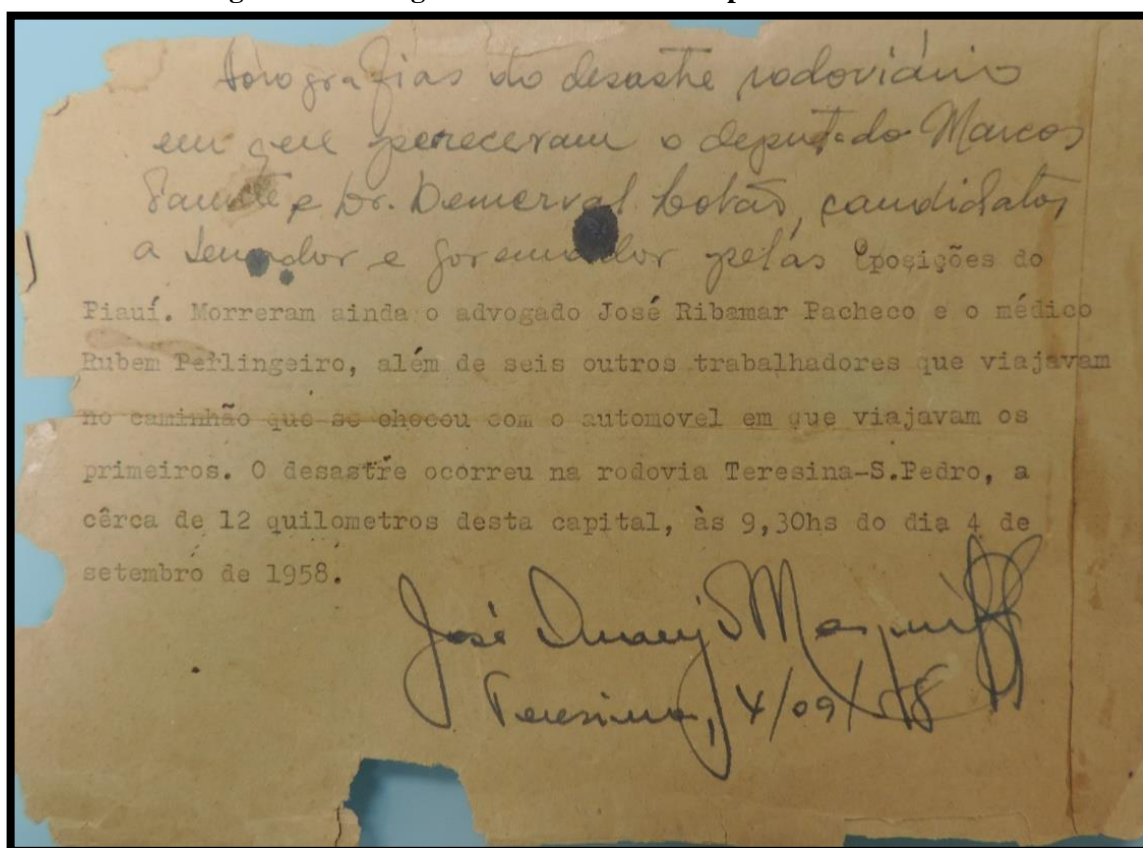 fotografias do desastre rodoviário
em que pereceram o deputado Marcos
e Dr. Demerval Lobão, candidatos
a Senador e governador pelas Oposições do
Piauí. Morreram ainda o advogado José Ribamar Pacheco e o médico
Rubem Perlingeiro, além de seis outros trabalhadores que viajavam
no caminhão que se chocou com o automovel em que viajavam os
primeiros. O desastre ocorreu na rodovia Teresina-S.Pedro, a
cêrca de 12 quilometros desta capital, às 9,30hs do dia 4 de
setembro de 1958.
José
Teresina, 4/09/58